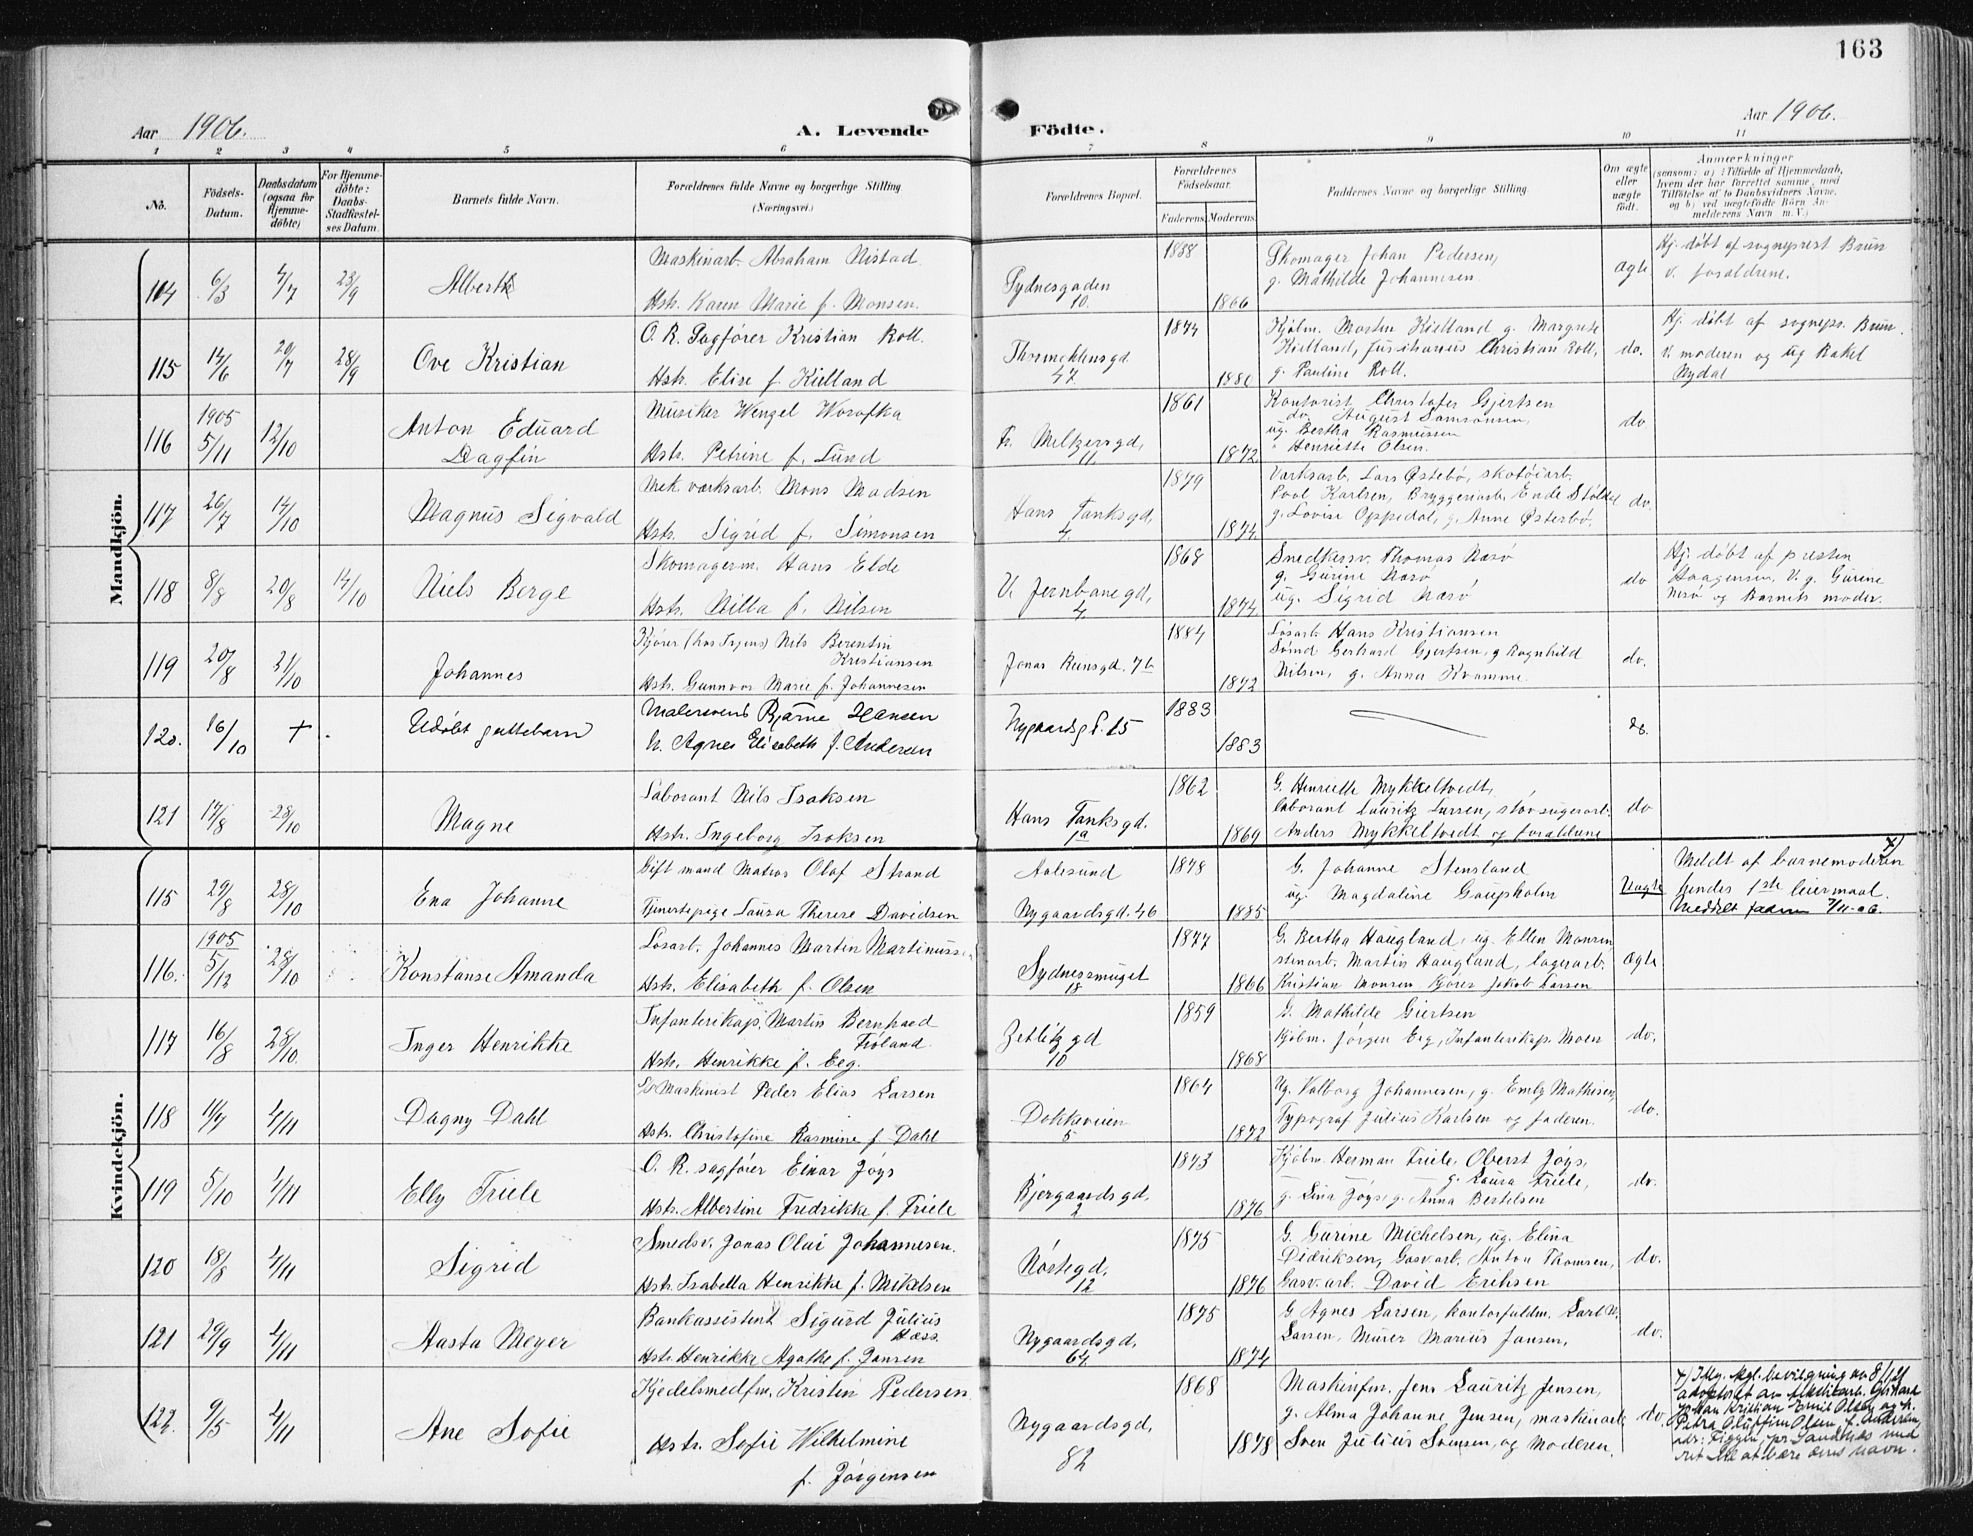 163
Aar 1906.
A. Levende
Födte.
Aar 1906.
1 2 3 4 5 6 7 8 9 10 11
No.
Födsels-
Datum.
Daabsdatum
(ogsaa for
Hjemme-
döbte)
For Hjemme-
döbte:
Daabs-
Stadfæstel-
ses Datum.
Barnets fulde Navn.
Forældrenes fulde Navne og borgerlige Stilling
(Næringsvei.)
Forældrenes Bopæl.
Forældrenes
Födselsaar.
Faderens. Moderens.
Faddernes Navne og borgerlige Stilling.
Om ægte
eller
uægte
födt.
Anmærkninger
(saasom: a) i Tilfælde af Hjemmedaab,
hvem der har forrettet samme, med
Tilföielse af to Daabsvidners Navne,
og b) ved uægtefödte Börn An-
melderens Navn m. V.)
Mandkjön.
114 6/3 4/7 23/9 Albert
Maskinarb. Abraham Nistad
Hstr. Karen Marie f. Monsen.
Sydnesgaden
10.
1838 1866
Skomager Johan Pedersen,
g. Mathilde Johannesen
ægte
Hj. døbt af sogneprest Brun
v. foraldrene.
115 14/6 20/7 28/9 Ove Kristian
O. R. Sagfører Kristian Roll.
Hstr. Elise f. Kielland
Thormøhlensgd.
47
1874 1880
Kjøbm. Morten Kielland g. Margrete
Kielland, Justitiarius Christian Roll,
g. Pauline Roll.
do.
Hj. døbt af sognepr. Brun.
V. moderen og ug Rakel
Nydal
116 1905 5/11 12/10 Anton Eduard
Dagfin
Musiker Wenzel Worofka
Hstr. Petrine f. Lund
Fr. Meltzersgd,
11.
1861 1872
Kontorist Christofer Gjertsen
do. August Samsonsen,
ug. Bertha Rasmussen
" Henriette Olsen.
do
117 26/7 14/10 Magnus Sigvald
Mek. værksarb. Mons Madsen
Hstr. Sigrid f. Simonsen
Hans Tanksgd,
4
1879 1874
Værksarb. Lars Østebø, skotøiarb.
Povl Karlsen, Bryggeriarb. Ende Stølde
g. Lovise Oppedal, g. Anne Østerbø,
do.
118 8/8 20/8 14/10 Niels Berge
Skomagerm. Hans Elde
Hstr. Nilla f. Nilsen
V. Jernbanegd,
4
1868 1874
Snedkersv. Thomas Næsø
g. Gurine Næsø
ug. Sigrid Næsø
do
Hj. døbt af presten
Haagensen, V. g. Gurine
Nesø og Barnets moder.
119 20/8 21/10 Johannes
Kjører (hos Irgens) Nils Berentin
Kristiansen
Hstr. Gunnvor Marie f. Johannesen
Jonas Reinsgd. 7b
1884 1872
Løsarb. Hans Kristiansen
Sømd Gerhard Gjertsen, g Ragnhild
Nilsen, g. Anna Kvamme.
do.
120. 16/10 + Udøbt guttebarn
Malersvend Bjarne Hansen
h. Agnes Elisabeth f. Andersen
Nygaardsg P. 15
1883 1883
do.
121 17/8 28/10 Magne
Laborant Nils Isaksen
Hstr. Ingeborg Isaksen
Hans Tanksgd.
1a
1862 1869
G. Henriette Mykkeltvedt,
laborant Lauritz Larsen, støvsugerarb.
Anders Mykkeltvedt og foraldrene
do
Kvindekjön.
115 29/8 28/10 Ena Johanne
Gift mand Matros Olaf Strand
Tjenestepige Laura Therese Davidsen
Aalesund
Nygaardsgd. 46
1878 1885
G. Johanne Stensland
ug. Magdaline Gaupholm
Uægte
x)
Meldt af barnemoderen
hendes 1ste leiermaal.
Meddelt faderen 7/11-06.
116. 1905 5/12 28/10 Konstanse Amanda
Løsarb. Johannes Martin Martinussen
Hstr. Elisabeth f. Olsen
Sydnessmuget
18
1877 1866
G. Bertha Haugland, ug. Ellen Monsen
stenarb. Martin Haugland, lagerarb.
Kristian Monsen Kjører Jakob Larsen
ægte
117 16/8 28/10. Inger Henrikke
Infanterikap. Martin Bernhard
Fioland.
Hstr. Henrikke f. Eeg.
Zetlitzgd
10
1859 1868
G. Mathilde Giertsen
Kjøbm. Jørgen Eeg, Infanterikap. Moen
do.
118 11/7 4/11 Dagny Dahl
Maskinist Peder Elias Larsen
Hstr. Christofine Rasmine f. Dahl
Dokkeveien
5
1864 1872
Ug. Valborg Johannesen, g. Emly Mathisen,
Typograf Julius Karlsen og faderen.
do.
119 5/10 4/11 Elly Friele
O. R. sagfører Einar Joys
Hstr. Albertine Fredrikke f. Friele
Bjergaardsgd,
2
1873 1876
Kjøbm. Herman Friele, Oberst Joys,
g. Laura Friele,
g. Lina Joys, g. Anna Bertelsen
do.
120 18/8 4/11 Sigrid
Smedsv. Jonas Olai Johannesen.
Hstr. Isabella Henrikke f. Mikelsen
Nøstegd.
12
1875 1876
G. Gurine Michelsen, ug. Elina
Didriksen, Gasv.arb. Anton Thomsen,
Gasv.arb. David Eriksen
do.
121 29/9 4/11 Aasta Meyer
Bankassistent Sigurd Julius
Næss
Hstr. Henrikke Agathe f. Jansen
Nygaardsgd,
64
1875 1874
G Agnes Larsen, kontorfuldm. Carl N.
Larsen, Murer Marius Jansen,
do.
122. 9/5 4/11 Ane Sofie
Kjedelsmedfm. Kristin Pedersen
Hstr. Sofie Wilhelmine
f. Jørgensen
Nygaardsgd,
82
1868 1878
Maskinfm. Jens Lauritz Jensen,
g. Alma Johanne Jensen, maskinarb
Sven Julius Svensen, og Moderen.
do.
x) Iflg. kgl. bevilgning av 8/1 21
adoptert av
Johan Kristian Emil Olsen og h.
Petra Olufine Olsen f. Andersen,
adr: Figgen, pr. Sandnæs med
ret til at bære deres navn.